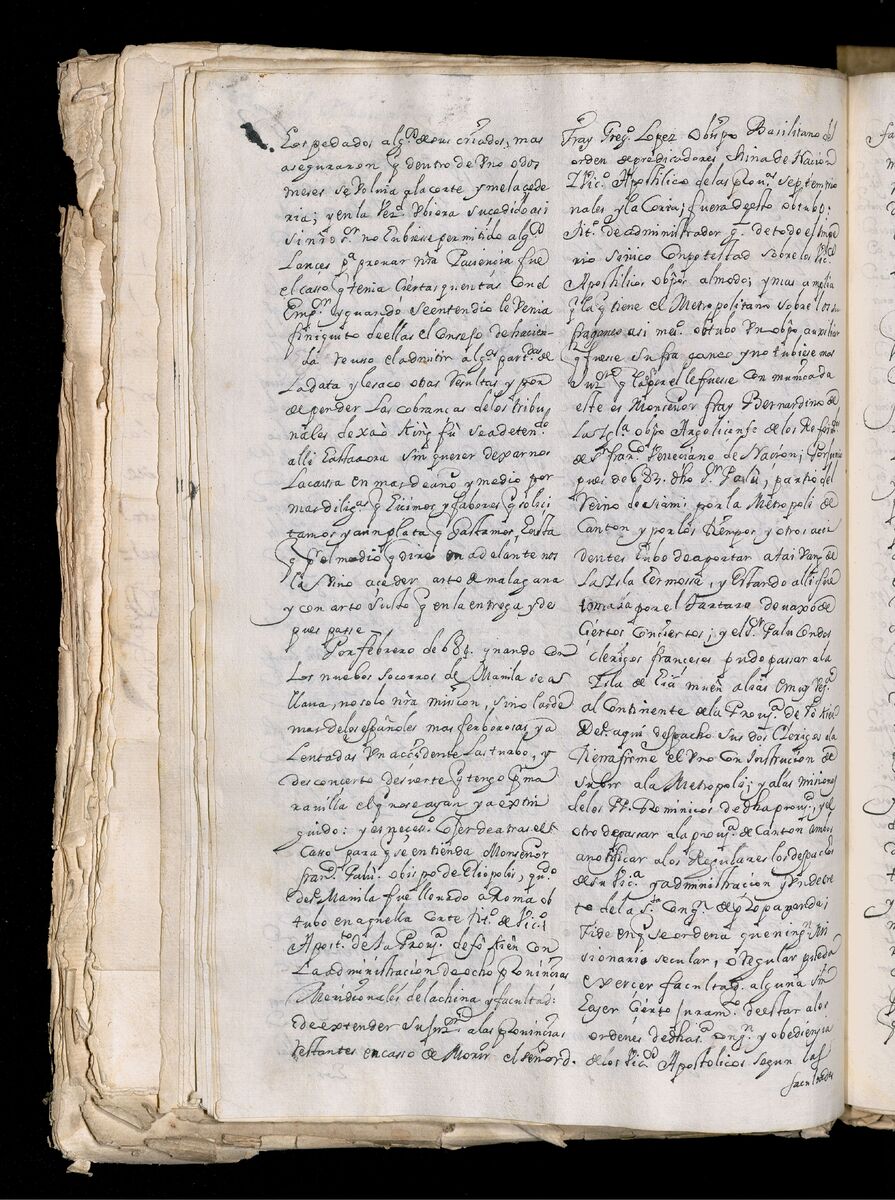 Los pedados alg.ᵒˢ de sus criados, mas
aseguraron q̃ dentro de vno o dos
meses se voluia a la corte y me la cede
ria; y en la verᵈ vbiera sucedido asi
si nrõ Sʳ no vbiese permitido alg.ᵒˢ
Lances pª prouar nrã Paciencia fue
el casso q̃ tenia ciertas quentas con el
Empʳ y quando se entendio le venia
finiquito de ellas el Consejo de hacien-
da reuso el admitir alg.ᵃˢ part.ᵃˢ de
La data y le saco otras resultas y por
depender las cobranças de los tribu
nales de xaò King fù se a deten.ᵈᵒ
alli hasta aora sin querer dexarnos
La cassa en mas de año y medio por
mas dilig.ᵃˢ q̃ hicimos y fabores q̃ solici
tamos y aun plata q̃ gastamos, hasta
q̃ pʳ el medio q̃ dire en adelante nos
la vino a ceder arto de mala gana
y con arto susto q̃ en la entrega y des
pues passe.
Por febrero de 684 quando con
Los nuebos socorros de Manila se a
llaua, no solo nrã mision, sino las de
mas de los españoles mas ferborosas, y a
Lentadas vn accidente las turbo, y
desconcerto de suerte q̃ tengo pʳ ma
rauilla el q̃ no se ayan ya extin
guido: y es neces.ᵒ coger de atras el
Casso para q̃ se entienda Monseñor
fran.ᶜᵒ Palù. obispo de Eliopolis, qᵈᵒ
desᵉ Manila fue lleuado a Roma ob
tubo en aquella corte tit.ᵒ de Vic.ᵒ
Apost.ᶜᵒ de la Prou.ª de fò Kièn con
La administracion de ocho prouincias
Meridionales de la china y facultad:
de extender su jur.ⁿ a las prouincias
restantes en casso de Morir el señor d.
Fray Greg.ᵒ Lopez Obispo Basilitano del
orden de predicadores China de Nacion
Vic.ᵒ Apostlico de las Prou.ᵃˢ septentrio
nales y la Coria; fuera de esto obtubo:
tit.ᵒ de administrador g.ˡ de todo el impe
rio sinico con potestad sobre los Vic.ˢ
Apostlicos obpõs al modo; y mas amplia
q̃ la q̃ tiene el Metropolitano sobre los su
fraganeos asi mes.ᵒ obtubo vn obpõ auxiliar
q̃ fuese su fraganeo y no tubiese mas
Jur.ⁿ q̃ la q̃ por el le fuese comunicada
este es Monseñor fray Bernardino de
La Igl.ª obpõ Argolicense de los Reform.ᵒˢ
de Sⁿ fran.ᶜᵒ Veneciano de Nacion; Por junio
pues de 683. dho Sʳ Palù, partio del
Reino de Siam, por la Metropoli de
Canton y por los tiempos y otros acci
dentes hubo de aportar a tai van de
La Isla hermossa, y estando alli fue
tomada por el tartaro de uaxo de
Ciertos conciertos; y el Sʳ Palu con dos
clerigos franceses pudo passar a la
Isla de
al Continente de la Prou.ª de fò Kièn
Desᵉ aqui despacho sus dos Clerigos a la
tierra firme el vno con Instrucion de
subir a la Metropoli; y a las misiones
de los PP. Dominicos de dha prou.ª, y el
otro de passar a la prou.ª de Canton ambos
a notificar a los Regulares los despachos
de su Vic.ª y administracion y vn decre
to de la S. Cong.ⁿ de Propaganda;
Fide en q̃ se ordena que ning.ⁿ Mi
sionario secular, o regular pueda
exercer facultad. alguna sin
hazer cierto juram.ᵒ de estar a los
ordenes de dha S. Cong.ⁿ y obediencia
de los Vic.ᵒˢ Apostolicos segun las
facultades